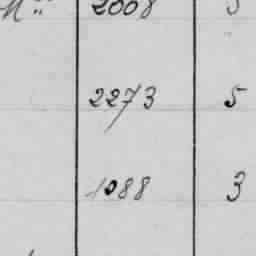 2008
2273 5
1088 3